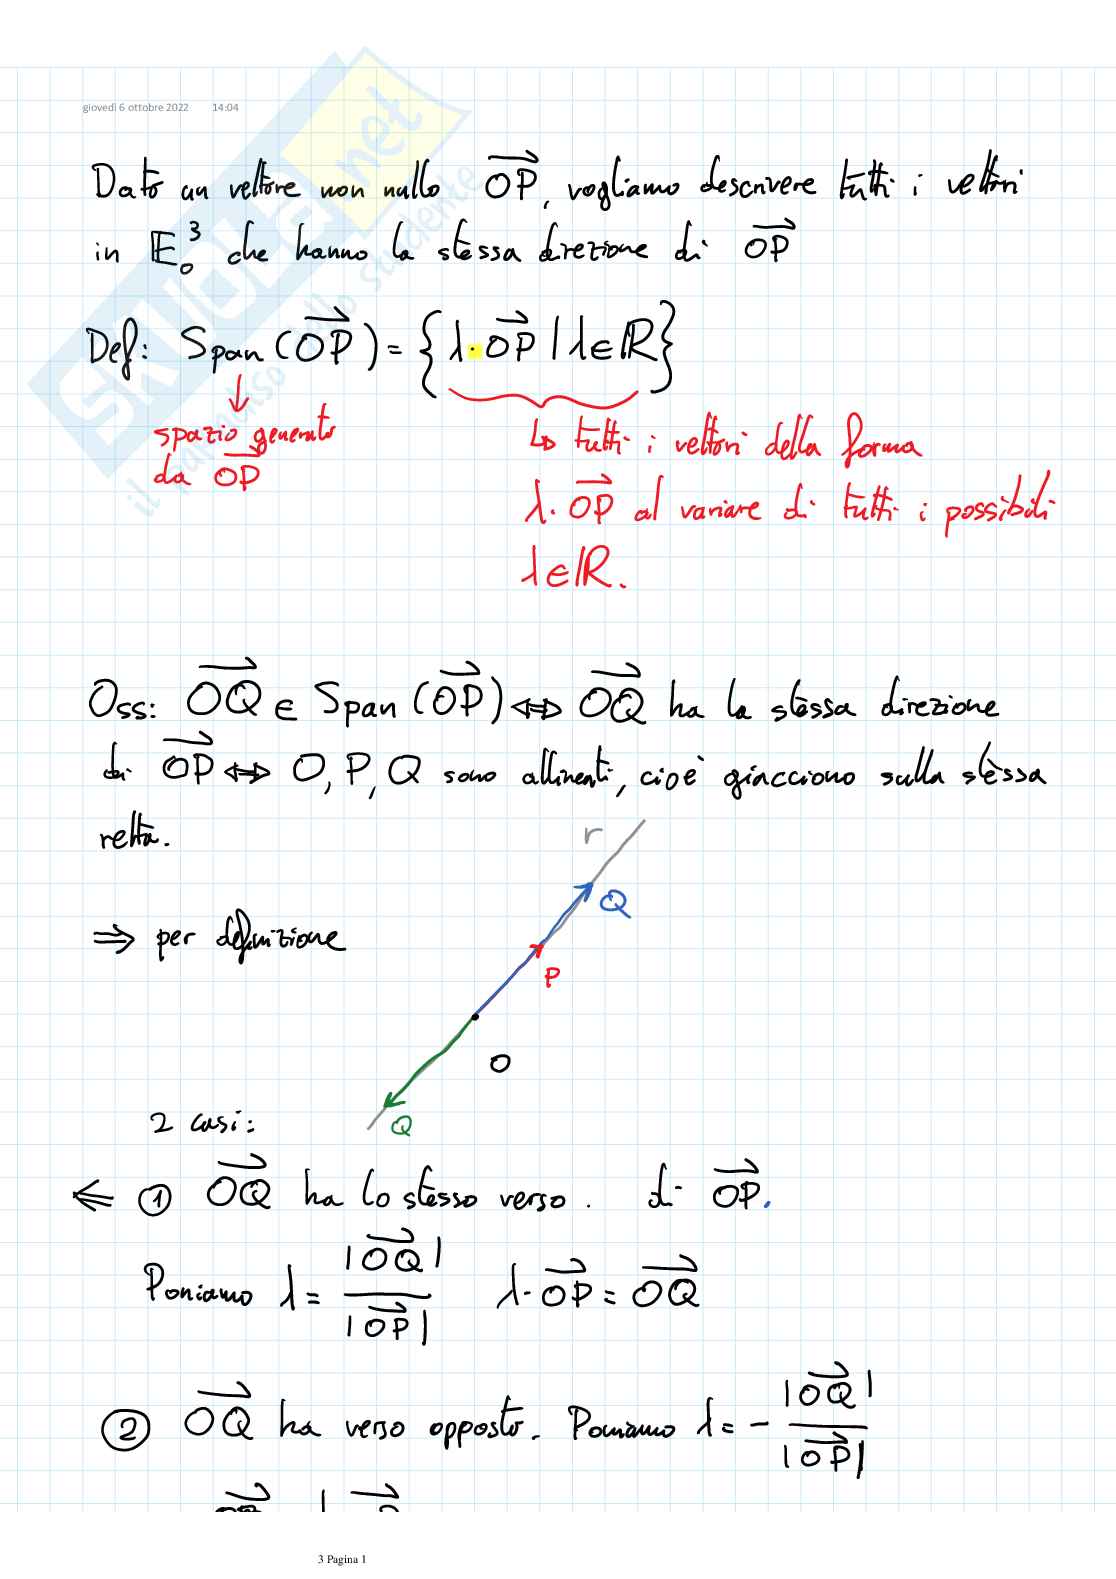 giovedì 6 ottobre 2022 14:04
SKUOLA.net
il paradiso dello studente
Dato un vettore non nullo OP⃗, vogliamo descrivere tutti i vettori
in 𝔼₀³ che hanno la stessa direzione di OP⃗
Def: Span (OP⃗) = {λ·OP⃗ | λ∈ℝ}
↓
spazio generato
da OP⃗
↳ tutti i vettori della forma
λ·OP⃗ al variare di tutti i possibili
λ∈ℝ.
Oss: OQ⃗ ∈ Span (OP⃗) ⇔ OQ⃗ ha la stessa direzione
di OP⃗ ⇔ O, P, Q sono allineati, cioè giacciono sulla stessa
retta.
r
Q
⇒ per definizione
P
O
Q
2 casi:
⇐ ① OQ⃗ ha lo stesso verso. di OP⃗.
Poniamo λ = |OQ⃗| / |OP⃗| λ·OP⃗ = OQ⃗
② OQ⃗ ha verso opposto. Poniamo λ = - |OQ⃗| / |OP⃗|
3 Pagina 1